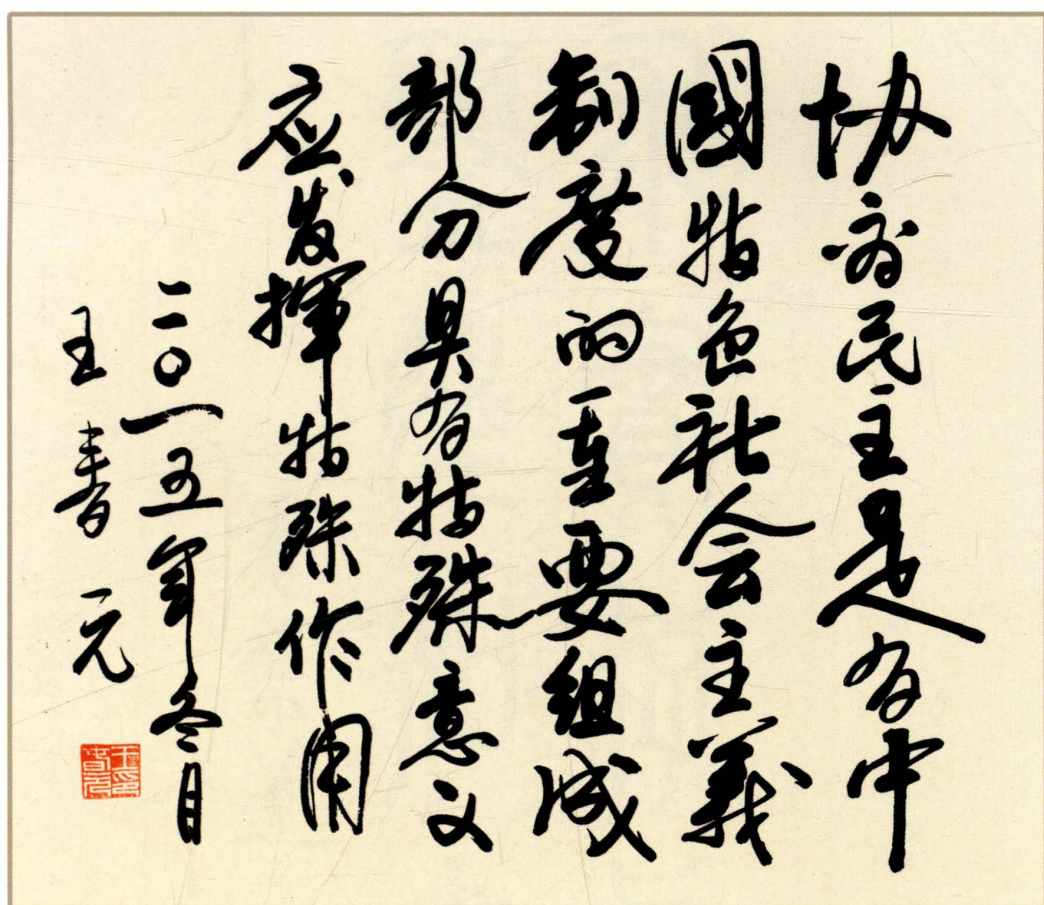 协商民主是有中
國特色社会主義
制度的重要组成
部分具有特殊意义
应发揮特殊作用
二〇一五年冬月
王 元